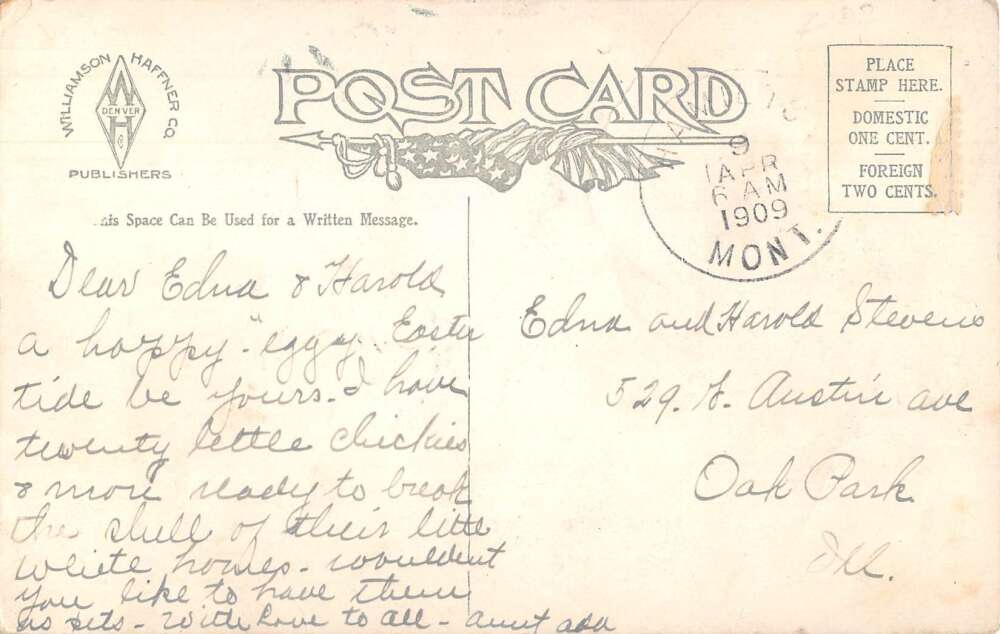 WILLIAMSON HAFFNER CO.
DENVER
PUBLISHERS
POST CARD
PLACE
STAMP HERE.
DOMESTIC
ONE CENT.
FOREIGN
TWO CENTS.
9
APR
6 AM
1909
MONT.
his Space Can Be Used for a Written Message.
Dear Edna & Harold
a happy - "eggy" Easter
tide be yours. I have
twenty little chickies
& more ready to break
the shell of their little
white homes. wouldent
you like to have them
as pets - With love to all - aunt ada
Edna and Harold Stevens
529. N. Austin ave
Oak Park
Ill.